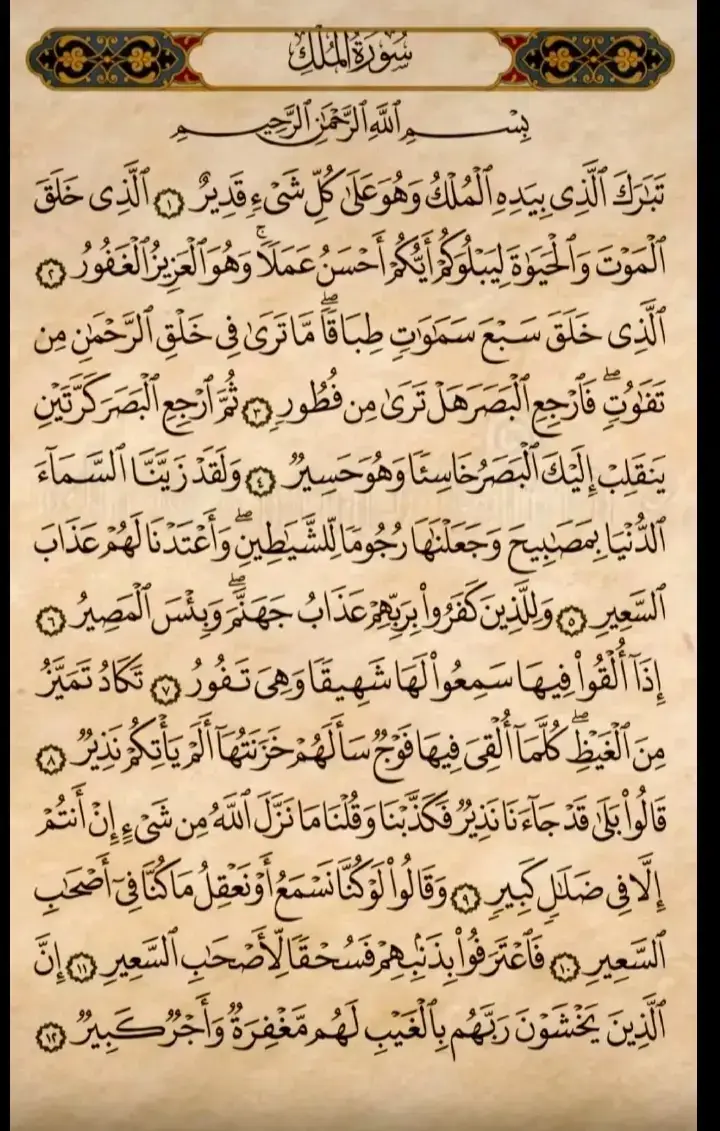 سُورَةُ الْمُلْكِ
بِسْمِ اللَّهِ الرَّحْمَٰنِ الرَّحِيمِ
تَبَٰرَكَ ٱلَّذِى بِيَدِهِ ٱلْمُلْكُ وَهُوَ عَلَىٰ كُلِّ شَىْءٍ قَدِيرٌ ١ ٱلَّذِى خَلَقَ
ٱلْمَوْتَ وَٱلْحَيَوٰةَ لِيَبْلُوَكُمْ أَيُّكُمْ أَحْسَنُ عَمَلًا ۚ وَهُوَ ٱلْعَزِيزُ ٱلْغَفُورُ ٢
ٱلَّذِى خَلَقَ سَبْعَ سَمَٰوَٰتٍ طِبَاقًا ۖ مَّا تَرَىٰ فِى خَلْقِ ٱلرَّحْمَٰنِ مِن
تَفَٰوُتٍ ۖ فَٱرْجِعِ ٱلْبَصَرَ هَلْ تَرَىٰ مِن فُطُورٍ ٣ ثُمَّ ٱرْجِعِ ٱلْبَصَرَ كَرَّتَيْنِ
يَنقَلِبْ إِلَيْكَ ٱلْبَصَرُ خَاسِئًا وَهُوَ حَسِيرٌ ٤ وَلَقَدْ زَيَّنَّا ٱلسَّمَآءَ
ٱلدُّنْيَا بِمَصَٰبِيحَ وَجَعَلْنَٰهَا رُجُومًا لِّلشَّيَٰطِينِ ۖ وَأَعْتَدْنَا لَهُمْ عَذَابَ
ٱلسَّعِيرِ ٥ وَلِلَّذِينَ كَفَرُوا۟ بِرَبِّهِمْ عَذَابُ جَهَنَّمَ ۖ وَبِئْسَ ٱلْمَصِيرُ ٦
إِذَآ أُلْقُوا۟ فِيهَا سَمِعُوا۟ لَهَا شَهِيقًا وَهِىَ تَفُورُ ٧ تَكَادُ تَمَيَّزُ
مِنَ ٱلْغَيْظِ ۖ كُلَّمَآ أُلْقِىَ فِيهَا فَوْجٌ سَأَلَهُمْ خَزَنَتُهَآ أَلَمْ يَأْتِكُمْ نَذِيرٌ ٨
قَالُوا۟ بَلَىٰ قَدْ جَآءَنَا نَذِيرٌ فَكَذَّبْنَا وَقُلْنَا مَا نَزَّلَ ٱللَّهُ مِن شَىْءٍ إِنْ أَنتُمْ
إِلَّا فِى ضَلَٰلٍ كَبِيرٍ ٩ وَقَالُوا۟ لَوْ كُنَّا نَسْمَعُ أَوْ نَعْقِلُ مَا كُنَّا فِىٓ أَصْحَٰبِ
ٱلسَّعِيرِ ١٠ فَٱعْتَرَفُوا۟ بِذَنۢبِهِمْ فَسُحْقًا لِّأَصْحَٰبِ ٱلسَّعِيرِ ١١ إِنَّ
ٱلَّذِينَ يَخْشَوْنَ رَبَّهُم بِٱلْغَيْبِ لَهُم مَّغْفِرَةٌ وَأَجْرٌ كَبِيرٌ ١٢